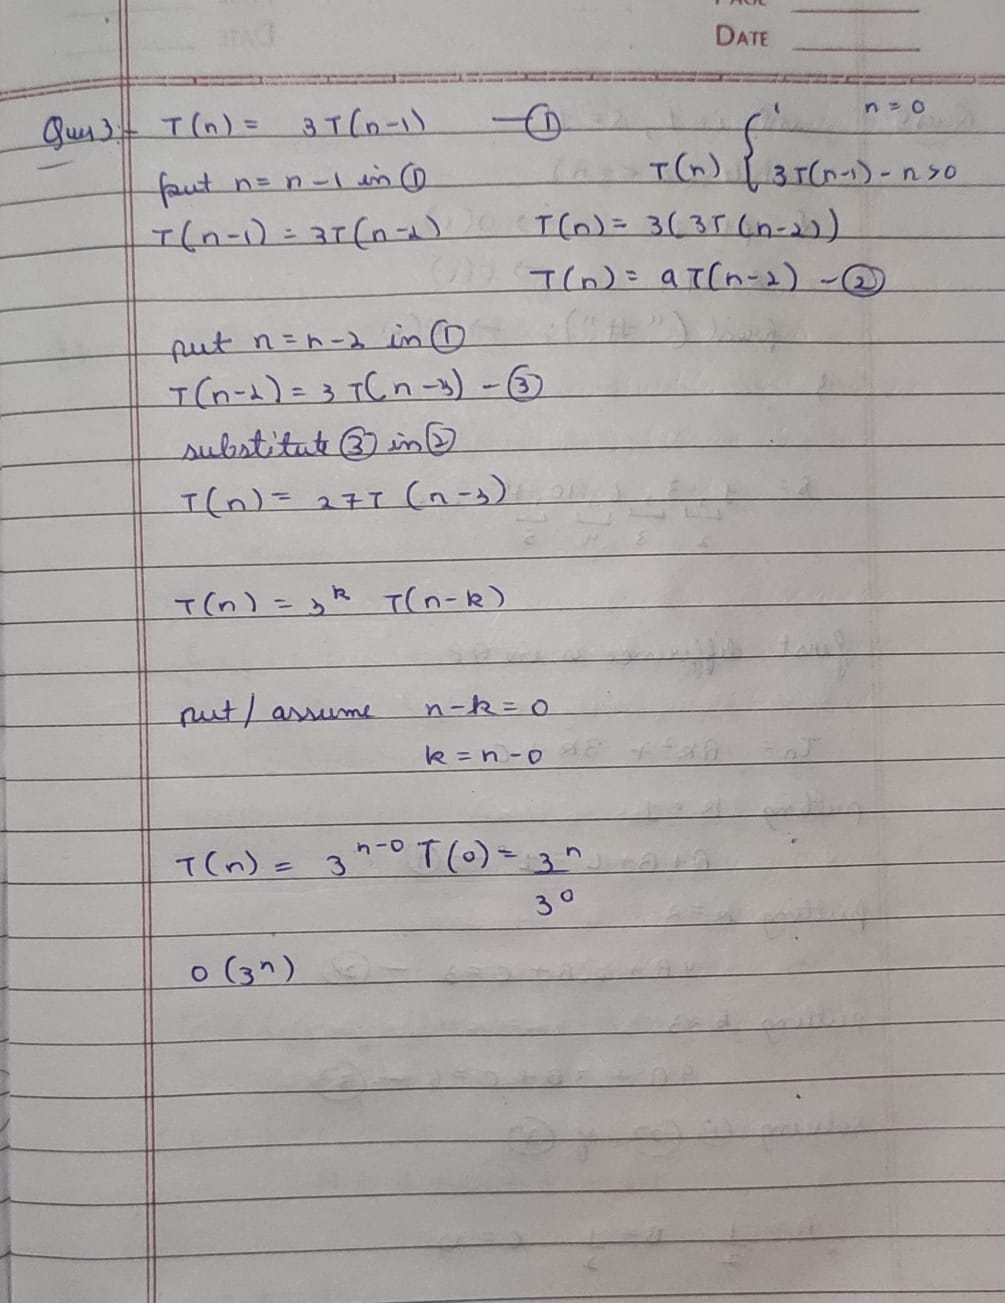 DATE
Ques 3:- T(n) = 3T(n-1) - ①
T(n) { 1 n=0
3T(n-1) - n>0
put n=n-1 in ①
T(n-1) = 3T(n-2)
T(n) = 3(3T(n-2))
T(n) = 9T(n-2) - ②
put n=n-2 in ①
T(n-2) = 3T(n-3) - ③
substitute ③ in ②
T(n) = 27T(n-3)
T(n) = 3^k T(n-k)
put / assume n-k=0
k=n-0
T(n) = 3^(n-0) T(0) = 3^n / 3^0
O(3^n)